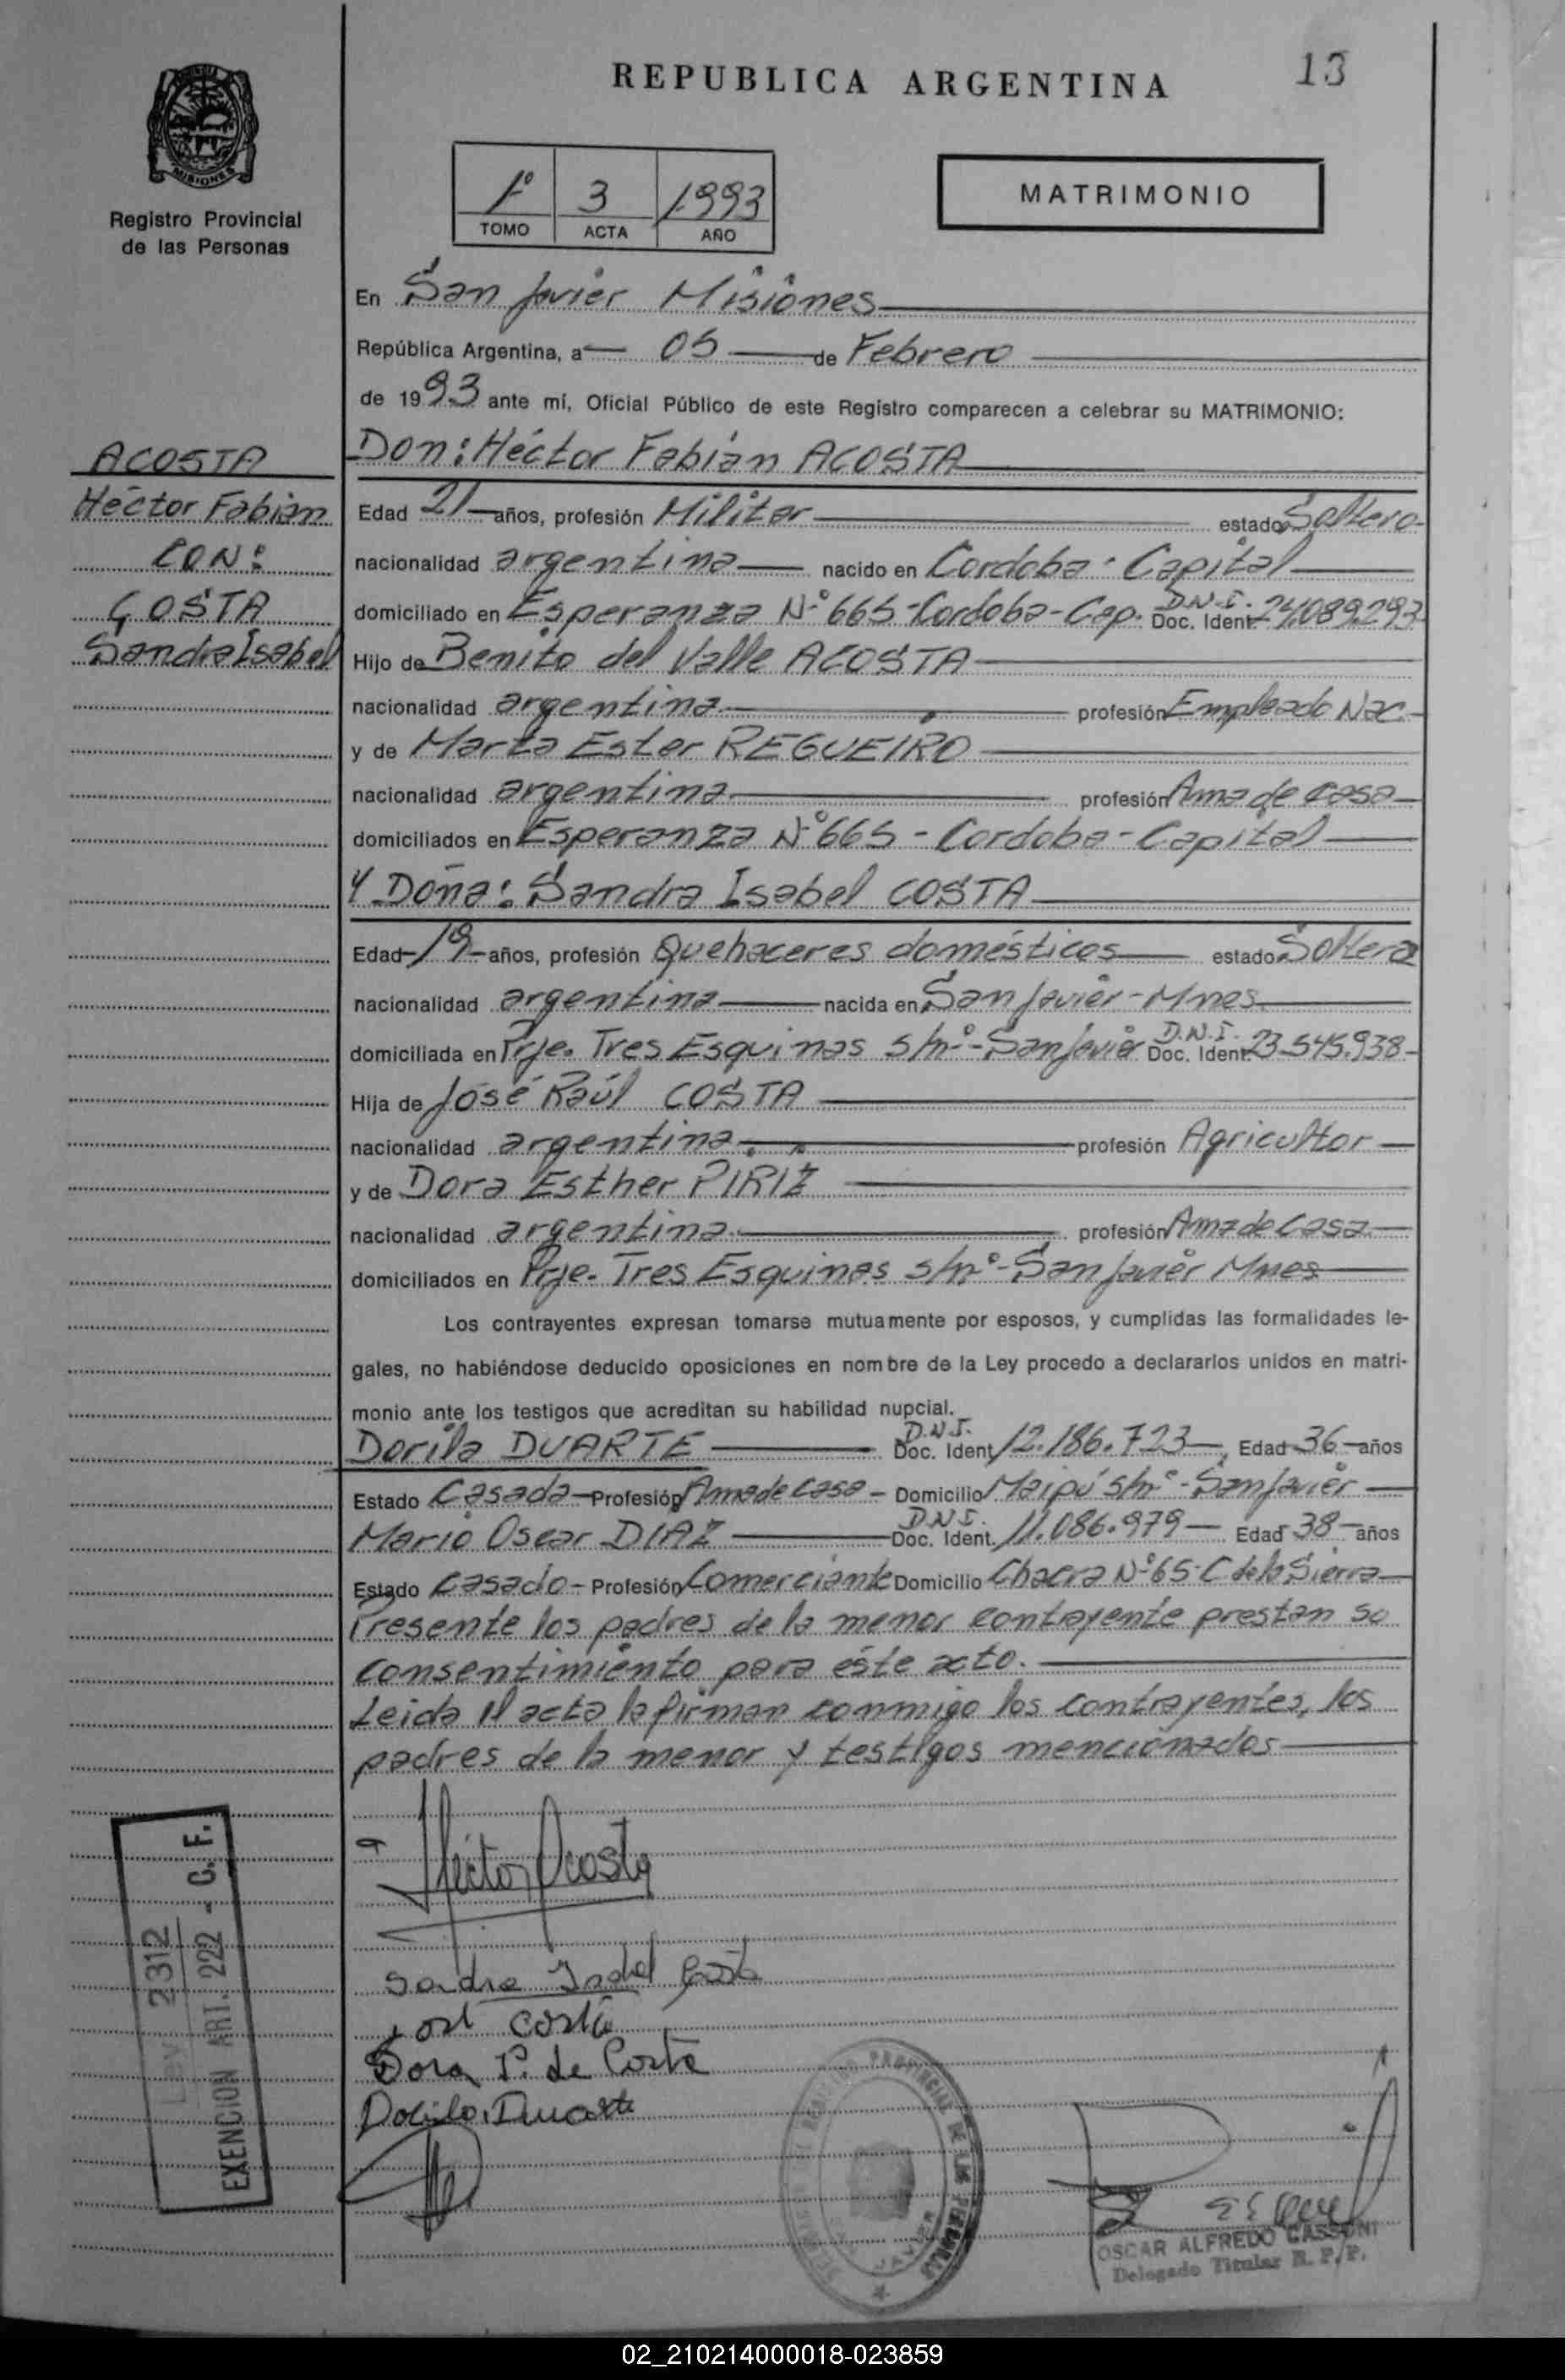 REPUBLICA ARGENTINA
13
MISIONES
Registro Provincial
de las Personas
1º 3 1993
TOMO ACTA AÑO
MATRIMONIO
En San Javier Misiones
República Argentina, a 05 de Febrero
de 1993 ante mí, Oficial Público de este Registro comparecen a celebrar su MATRIMONIO:
ACOSTA
Héctor Fabián
CON:
COSTA
Sandra Isabel
Don: Héctor Fabián ACOSTA
Edad 21 años, profesión Militar estado Soltero
nacionalidad argentina nacido en Cordoba - Capital
domiciliado en Esperanza Nº 665 - Cordoba - Cap. D.N.I. Doc. Ident. 24.089.293
Hijo de Benito del Valle ACOSTA
nacionalidad argentina profesión Empleado Nac.
y de Marta Ester REGUEIRO
nacionalidad argentina profesión Ama de casa
domiciliados en Esperanza Nº 665 - Cordoba - Capital
Y Doña: Sandra Isabel COSTA
Edad 19 años, profesión Quehaceres domésticos estado Soltera
nacionalidad argentina nacida en San Javier - Mnes
domiciliada en Pje. Tres Esquinas s/nº - San Javier D.N.I. Doc. Ident. 23.545.938
Hija de José Raúl COSTA
nacionalidad argentina profesión Agricultor
y de Dora Esther PIRIZ
nacionalidad argentina profesión Ama de Casa
domiciliados en Pje. Tres Esquinas s/nº - San Javier Mnes
Los contrayentes expresan tomarse mutuamente por esposos, y cumplidas las formalidades le-
gales, no habiéndose deducido oposiciones en nombre de la Ley procedo a declararlos unidos en matri-
monio ante los testigos que acreditan su habilidad nupcial.
Dorila DUARTE D.N.I. Doc. Ident. 12.186.723, Edad 36 años
Estado Casada Profesión Ama de casa - Domicilio Maipú s/nº - San Javier
Mario Oscar DIAZ D.N.I. Doc. Ident. 11.086.979 Edad 38 años
Estado Casado - Profesión Comerciante Domicilio Chacra Nº 65 - C de la Sierra
Presente los padres de la menor contrayente prestan su
consentimiento para éste acto.
Leida el acta la firman conmigo los contrayentes, los
padres de la menor y testigos mencionados
Héctor Acosta
Sandra Isabel Costa
José Costa
Dora P. de Costa
Dorila Duarte
Ley 2312
EXENCION ART. 222 - C. F.
REGISTRO PROVINCIAL DE LAS PERSONAS
OSCAR ALFREDO CASSONI
Delegado Titular R. P. P.
02_210214000018-023859